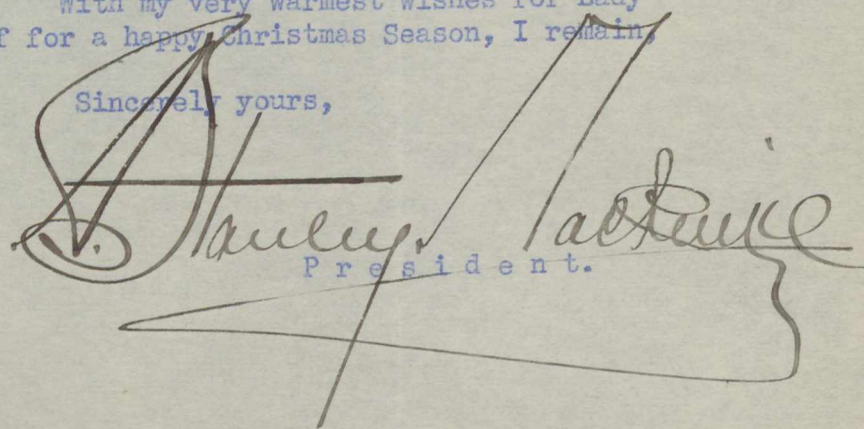 With my very warmest wishes for Lady
f for a happy Christmas Season, I remain,
Sincerely yours,
A. Stanley MacKenzie
President.